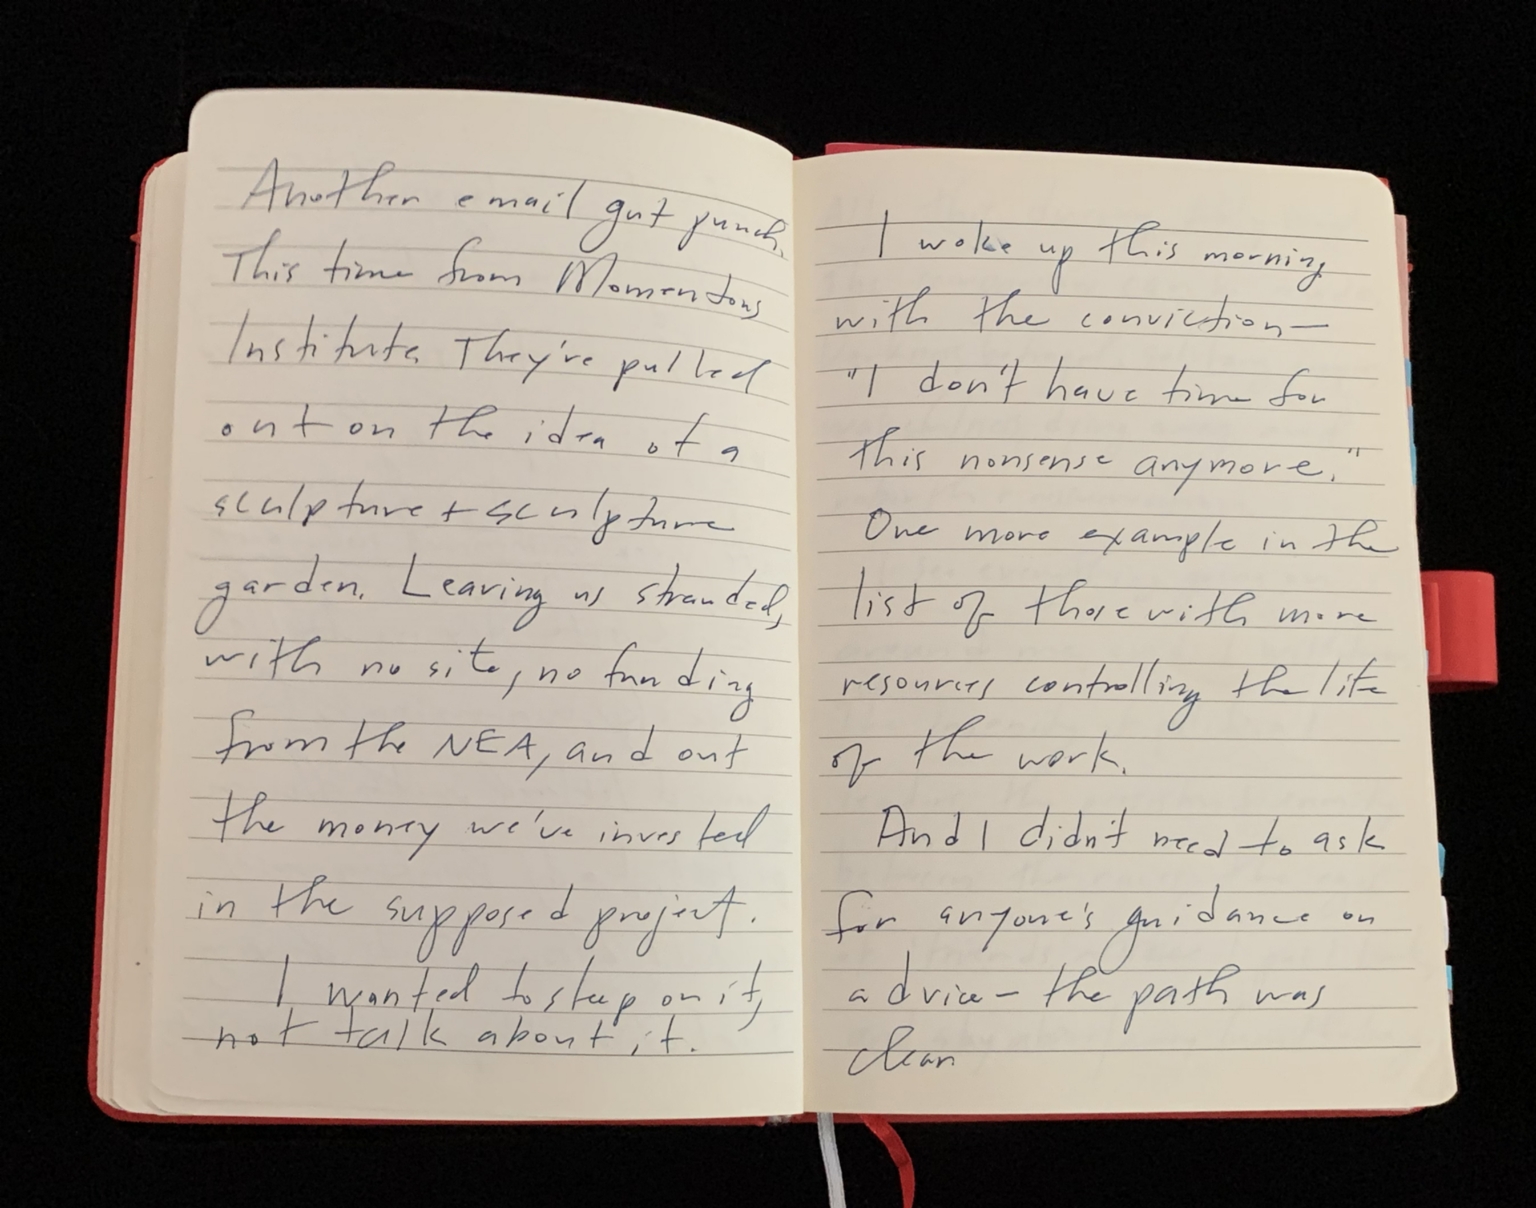 Another email gut punch.
This time from Momentous
Institute. They're pulled
out on the idea of a
sculpture + sculpture
garden. Leaving us stranded,
with no site, no funding
from the NEA, and out
the money we've invested
in the supposed project.
I wanted to sleep on it,
not talk about it.
I woke up this morning
with the conviction—
"I don't have time for
this nonsense anymore."
One more example in the
list of those with more
resources controlling the life
of the work.
And I didn't need to ask
for anyone's guidance or
advice— the path was
clear